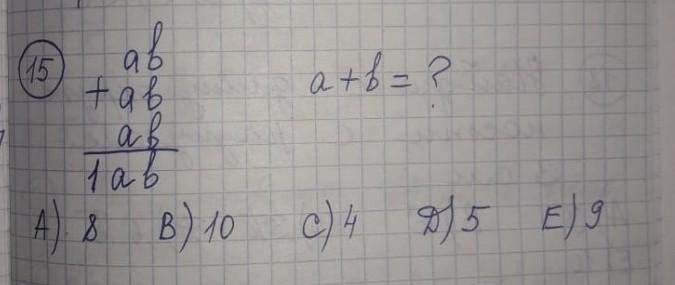 15
ab
+ ab
ab
1ab
a+b=?
A) 8 B) 10 C) 4 D) 5 E) 9